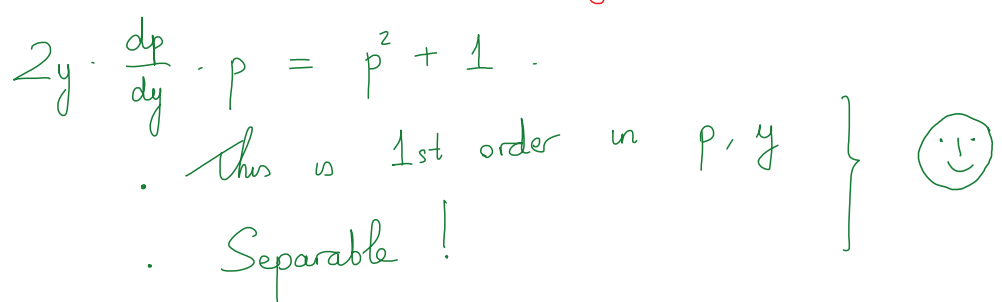 2y · dp/dy · p = p² + 1 .
· This is 1st order in p, y
· Separable !